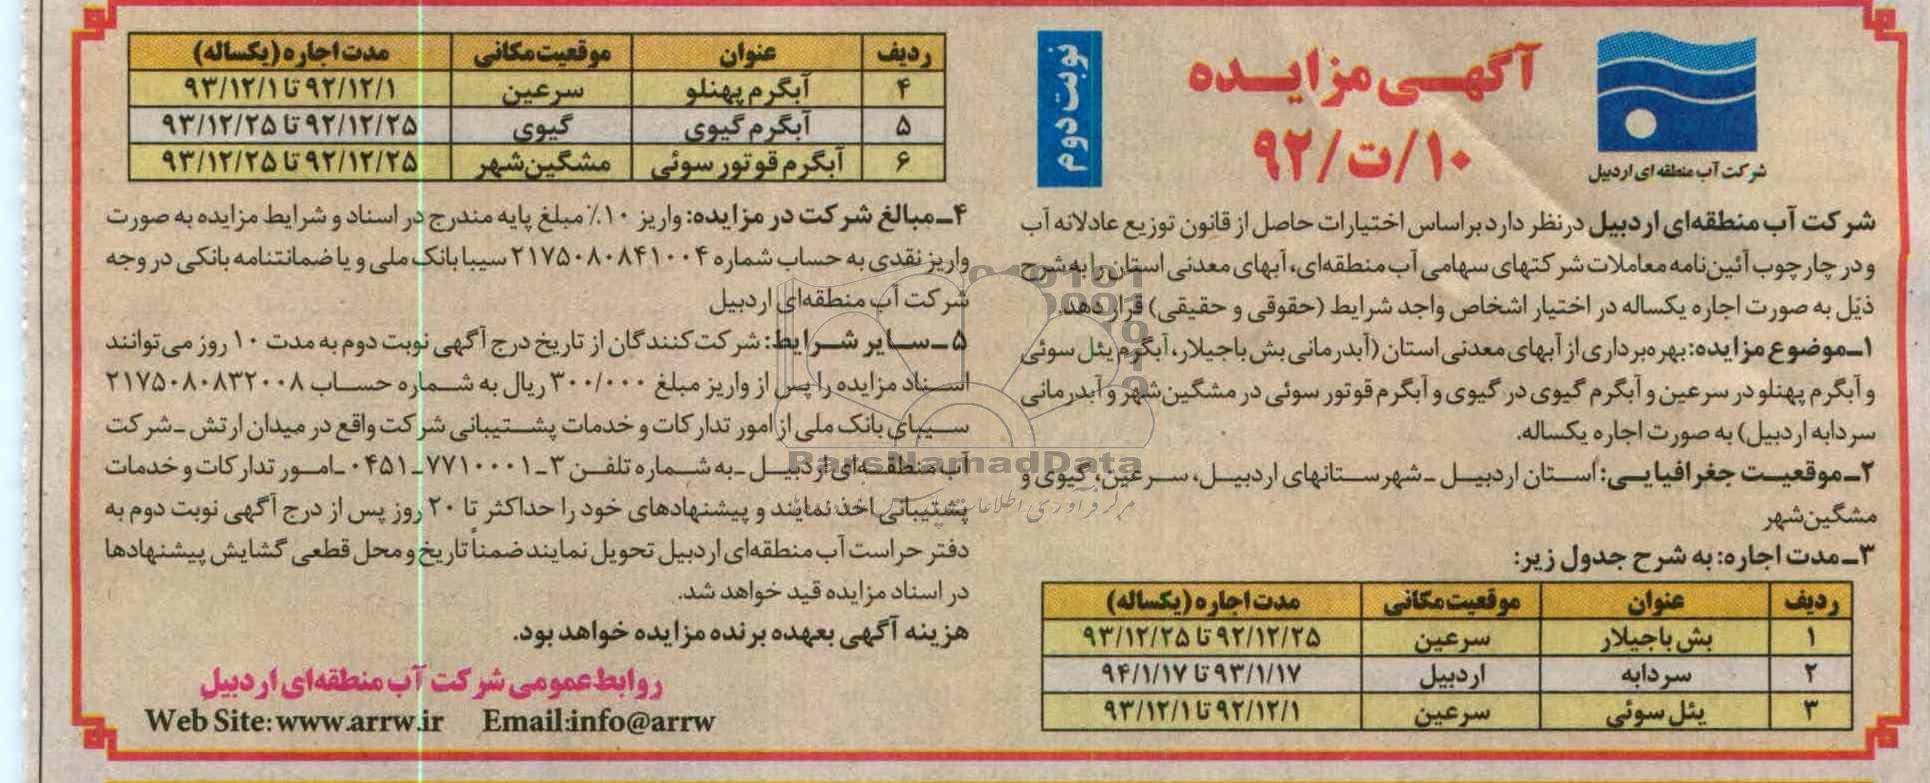 شرکت آب منطقه ای اردبیل
آگهی مزایده
۱۰/ت/۹۲
نوبت دوم
شرکت آب منطقه‌ای اردبیل درنظر دارد براساس اختیارات حاصل از قانون توزیع عادلانه آب
و در چارچوب آئین‌نامه معاملات شرکتهای سهامی آب منطقه‌ای، آبهای معدنی استان را به شرح
ذیل به صورت اجاره یکساله در اختیار اشخاص واجد شرایط (حقوقی و حقیقی) قرار دهد.
۱ـ موضوع مزایده: بهره‌برداری از آبهای معدنی استان (آبدرمانی بش باجیلار، آبگرم یئل سوئی
و آبگرم پهنلو در سرعین و آبگرم گیوی در گیوی و آبگرم قوتور سوئی در مشگین‌شهر و آبدرمانی
سردابه اردبیل) به صورت اجاره یکساله.
۲ـ موقعیت جغرافیایی: استان اردبیل ـ شهرستانهای اردبیل، سرعین، گیوی و
مشگین‌شهر
۳ـ مدت اجاره: به شرح جدول زیر:
ردیف عنوان موقعیت مکانی مدت اجاره (یکساله)
۱ بش باجیلار سرعین ۹۲/۱۲/۲۵ تا ۹۳/۱۲/۲۵
۲ سردابه اردبیل ۹۳/۱/۱۷ تا ۹۴/۱/۱۷
۳ یئل سوئی سرعین ۹۲/۱۲/۱ تا ۹۳/۱۲/۱
ردیف عنوان موقعیت مکانی مدت اجاره (یکساله)
۴ آبگرم پهنلو سرعین ۹۲/۱۲/۱ تا ۹۳/۱۲/۱
۵ آبگرم گیوی گیوی ۹۲/۱۲/۲۵ تا ۹۳/۱۲/۲۵
۶ آبگرم قوتور سوئی مشگین‌شهر ۹۲/۱۲/۲۵ تا ۹۳/۱۲/۲۵
۴ـ مبالغ شرکت در مزایده: واریز ۱۰٪ مبلغ پایه مندرج در اسناد و شرایط مزایده به صورت
واریز نقدی به حساب شماره ۲۱۷۵۰۸۰۸۴۱۰۰۴ سیبا بانک ملی و یا ضمانتنامه بانکی در وجه
شرکت آب منطقه‌ای اردبیل
۵ـ سایر شرایط: شرکت‌کنندگان از تاریخ درج آگهی نوبت دوم به مدت ۱۰ روز می‌توانند
اسناد مزایده را پس از واریز مبلغ ۳۰۰/۰۰۰ ریال به شماره حساب ۲۱۷۵۰۸۰۸۳۲۰۰۸
سیبای بانک ملی از امور تدارکات و خدمات پشتیبانی شرکت واقع در میدان ارتش ـ شرکت
آب منطقه‌ای اردبیل ـ به شماره تلفن ۳ـ۷۷۱۰۰۰۱ـ۰۴۵۱ـ امور تدارکات و خدمات
پشتیبانی اخذ نمایند و پیشنهادهای خود را حداکثر تا ۲۰ روز پس از درج آگهی نوبت دوم به
دفتر حراست آب منطقه‌ای اردبیل تحویل نمایند ضمناً تاریخ و محل قطعی گشایش پیشنهادها
در اسناد مزایده قید خواهد شد.
هزینه آگهی بعهده برنده مزایده خواهد بود.
روابط عمومی شرکت آب منطقه‌ای اردبیل
Web Site: www.arrw.ir Email:info@arrw
ParsNamadData